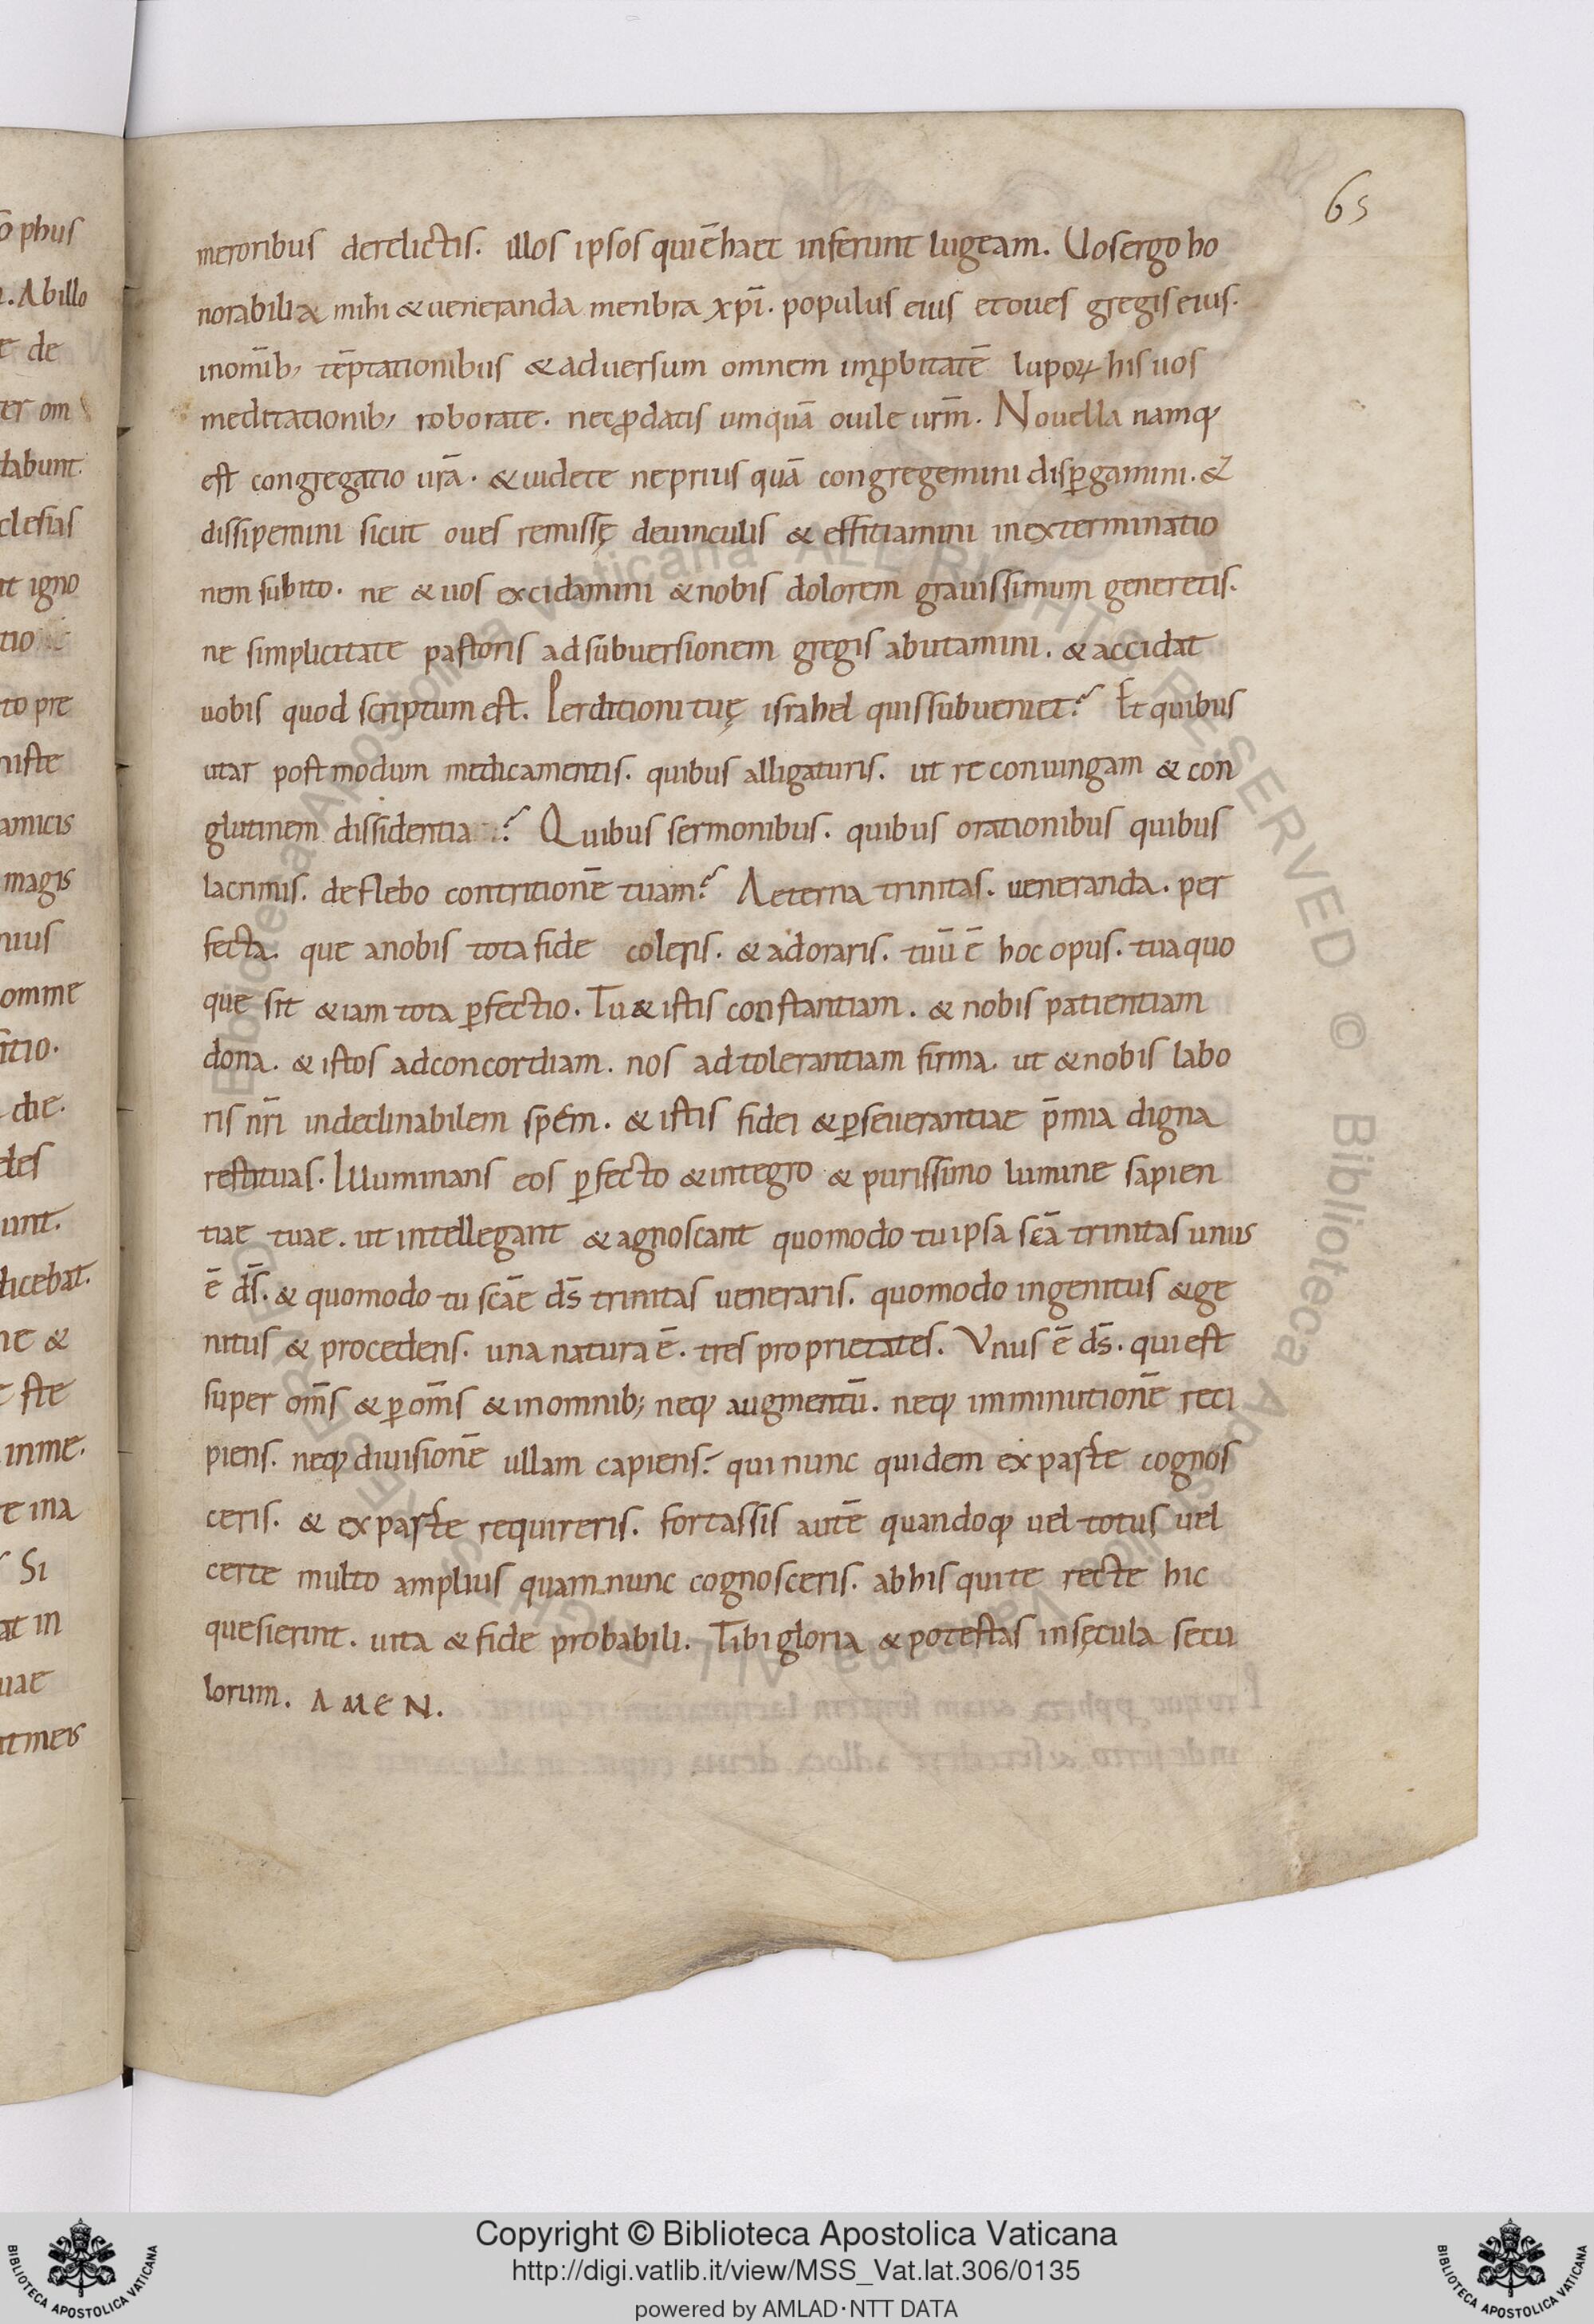 65
meroribus derelictis. illos ipsos qui ē haec inferunt lugeam. Uos ergo ho
norabilia mihi & ueneranda menbra xp̄i. populus eius et oues gregis eius.
in om̄ib; tēptationibus & aduersum omnem inꝓbitatē lupoꝝ his uos
meditationib; roborate. nec ꝓdatis umquā ouile ur̄m. Nouella namq;
est congregatio ur̄a. & uidete ne prius quā congregemini disꝑgamini. &
dissipemini sicut oues remissę de uinculis & effitiamini in exterminatio
nem subito. ne & uos excidamini & nobis dolorem grauissimum generetis.
ne simplicitate pastoris ad subuersionem gregis abutamini. & accidat
uobis quod scriptum est. Perditioni tuę israhel quis subueniet? Et quibus
utar postmodum medicamentis. quibus alligaturis. ut re coniungam & con
glutinem dissidentia? Quibus sermonibus. quibus orationibus quibus
lacrimis. deflebo contritionē tuam? Aeterna trinitas. ueneranda. per
fecta. que a nobis tota fide coleris. & adoraris. tuū ē hoc opus. tua quo
que sit & iam tota ꝑfectio. Tu & istis constantiam. & nobis patientiam
dona. & istos ad concordiam. nos ad tolerantiam firma. ut & nobis labo
ris nr̄i indeclinabilem spem. & istis fidei & ꝑseuerantiae p̄mia digna
restituas. Illuminans eos ꝑfecto & integro & purissimo lumine sapien
tiae tuae. ut intellegant & agnoscant quomodo tu ipsa sc̄a trinitas unus
ē d̄s. & quomodo tu sc̄ae d̄s trinitas ueneraris. quomodo ingenitus & ge
nitus & procedens. una natura ē. tres proprietates. Unus ē d̄s. qui est
super om̄s & ꝑ om̄s & in omnib; neq; augmentū. neq; imminutionē reci
piens. neq; diuisionē ullam capiens? qui nunc quidem ex parte cognos
ceris. & ex parte requireris. fortassis autē quandoq; uel totus uel
certe multo amplius quam nunc cognosceris. ab his qui te recte hic
quesierint. uita & fide probabili. Tibi gloria & potestas in sęcula secu
lorum. AMEN.
Copyright © Biblioteca Apostolica Vaticana
http://digi.vatlib.it/view/MSS_Vat.lat.306/0135
powered by AMLAD·NTT DATA